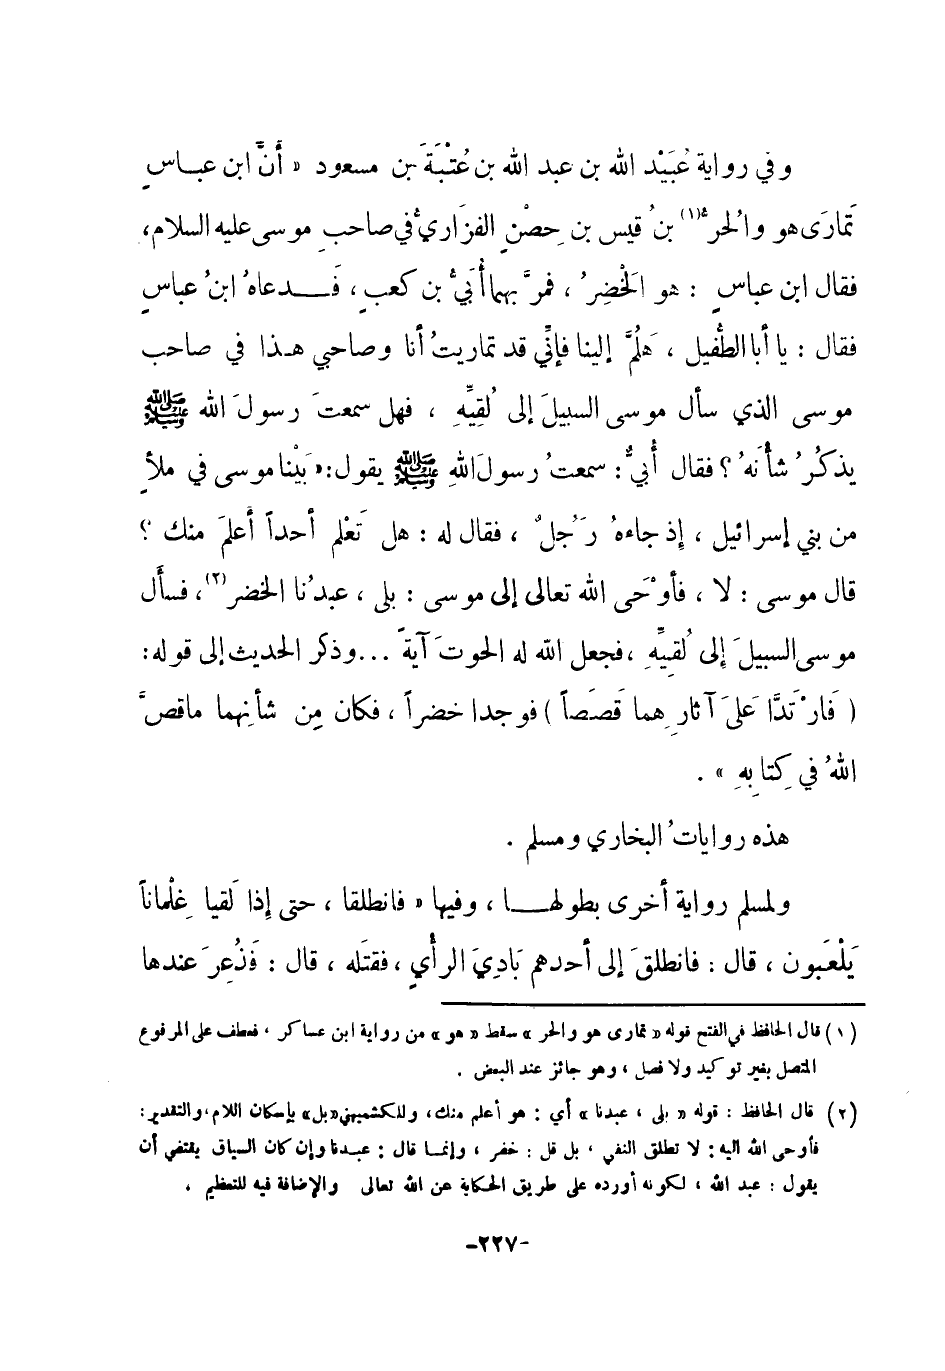 وفي رواية عُبَيْد الله بن عبد الله بن عُتْبَةَ بن مسعود « أَنَّ ابن عباسٍ
تَمَارَى هو والحُر(١) بنُ قيس بن حِصْنٍ الفزاريُّ في صاحبِ موسى عليه السلام،
فقال ابن عباسٍ : هو الخَضِرُ ، فمرَّ بهما أُبَيُّ بن كعبٍ ، فَدعاهُ ابنُ عباسٍ
فقال : يا أبا الطُّفيل ، هَلُمَّ إلينا فإنِّي قد تماريتُ أنا وصاحبي هذا في صاحب
موسى الذي سأل موسى السبيلَ إلى لُقِيِّهِ ، فهل سمعتَ رسولَ الله ﷺ
يذكُرُ شأْنَهُ ؟ فقال أُبيٌّ : سمعتُ رسولَ اللهِ ﷺ يقول: « بَيْنا موسى في ملأٍ
من بني إسرائيل ، إذ جاءهُ رَجُلٌ ، فقال له : هل تَعْلم أحداً أعلمَ منك ؟
قال موسى : لا ، فأوْحَى الله تعالى إلى موسى : بلى ، عبدُنا الخضر(٢) ، فسأل
موسى السبيلَ إلى لُقيِّهِ ، فجعل الله له الحوتَ آيةً ... وذكر الحديث إلى قوله:
( فَارْتَدَّا عَلَى آثارِهما قَصَصَاً ) فوجدا خضراً ، فكان مِن شأنِهما ما قصَّ
اللهُ في كِتابِهِ » .
هذه رواياتُ البخاري ومسلم .
ولمسلم رواية أخرى بطولها ، وفيها « فانطلقا ، حتى إذا لَقيا غِلْماناً
يَلْعَبون ، قال : فانطلقَ إلى أحدهم بَادِيَ الرأْيِ ، فقتَله ، قال : فَذُعِرَ عندها
(١) قال الحافظ في الفتح قوله « تمارى هو والحر » سقط « هو » من رواية ابن عساكر ، فعطف على المرفوع
المتصل بغير توكيد ولا فصل ، وهو جائز عند البعض .
(٢) قال الحافظ : قوله « بلى ، عبدنا » أي : هو أعلم منك، وللكشميهني «بل» بإسكان اللام، والتقدير:
فأوحى الله اليه : لا تطلق النفي ، بل قل : خضر ، وإنما قال : عبدنا وإن كان السياق يقتضي أن
يقول : عبد الله ، لكونه أورده على طريق الحكاية عن الله تعالى والإضافة فيه للتعظيم .
-٢٢٧-